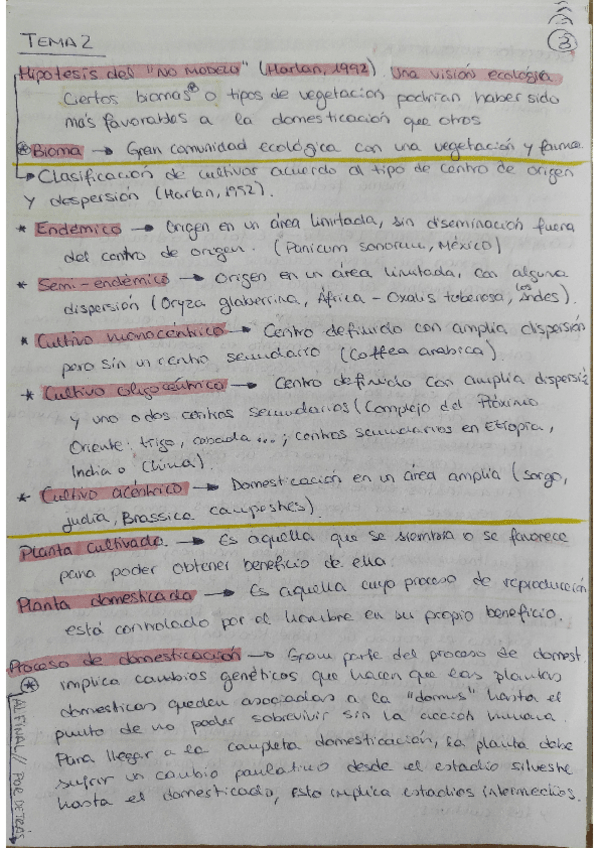 3
TEMA 2
Hipótesis del "No Modelo" (Harlan, 1992). Una visión ecológica
Ciertos biomas⊛ o tipos de vegetación podrían haber sido
más favorables a la domesticación que otros
⊛ Bioma → Gran comunidad ecológica con una vegetación y fauna
→ Clasificación de cultivar acuerdo al tipo de centro de origen
y dispersión (Harlan, 1992).
* Endémico → Origen en un área limitada, sin diseminación fuera
del centro de origen. (Panicum sonorum, México)
* Semi-endémico → Origen en un área limitada, con alguna
dispersión (Oryza glaberrina, África - Oxalis tuberosa, los Andes).
* Cultivo monocéntrico → Centro definido con amplia dispersión
pero sin un centro secundario (Coffea arabica).
* Cultivo oligocéntrico → Centro definido con amplia dispersió
y uno o dos centros secundarios (Complejo del Próximo
Oriente: trigo, cebada ...; centros secundarios en Etiopía,
India o China).
* Cultivo acéntrico → Domesticación en un área amplia (sorgo,
judía, Brassica campestres).
Planta cultivada. → Es aquella que se siembra o se favorece
para poder obtener beneficio de ella.
Planta domesticada → Es aquella cuyo proceso de reproducción
está controlado por el hombre en su propio beneficio.
Proceso de domesticación → Gran parte del proceso de domest.
⊛ implica cambios genéticos que hacen que las plantas
domesticas queden asociadas a la "domus" hasta el
punto de no poder sobrevivir sin la acción humana.
Para llegar a la completa domesticación, la planta debe
sufrir un cambio paulatino desde el estadio silvestre
hasta el domesticado, esto implica estadios intermedios.
AL FINAL // POR DETRÁS